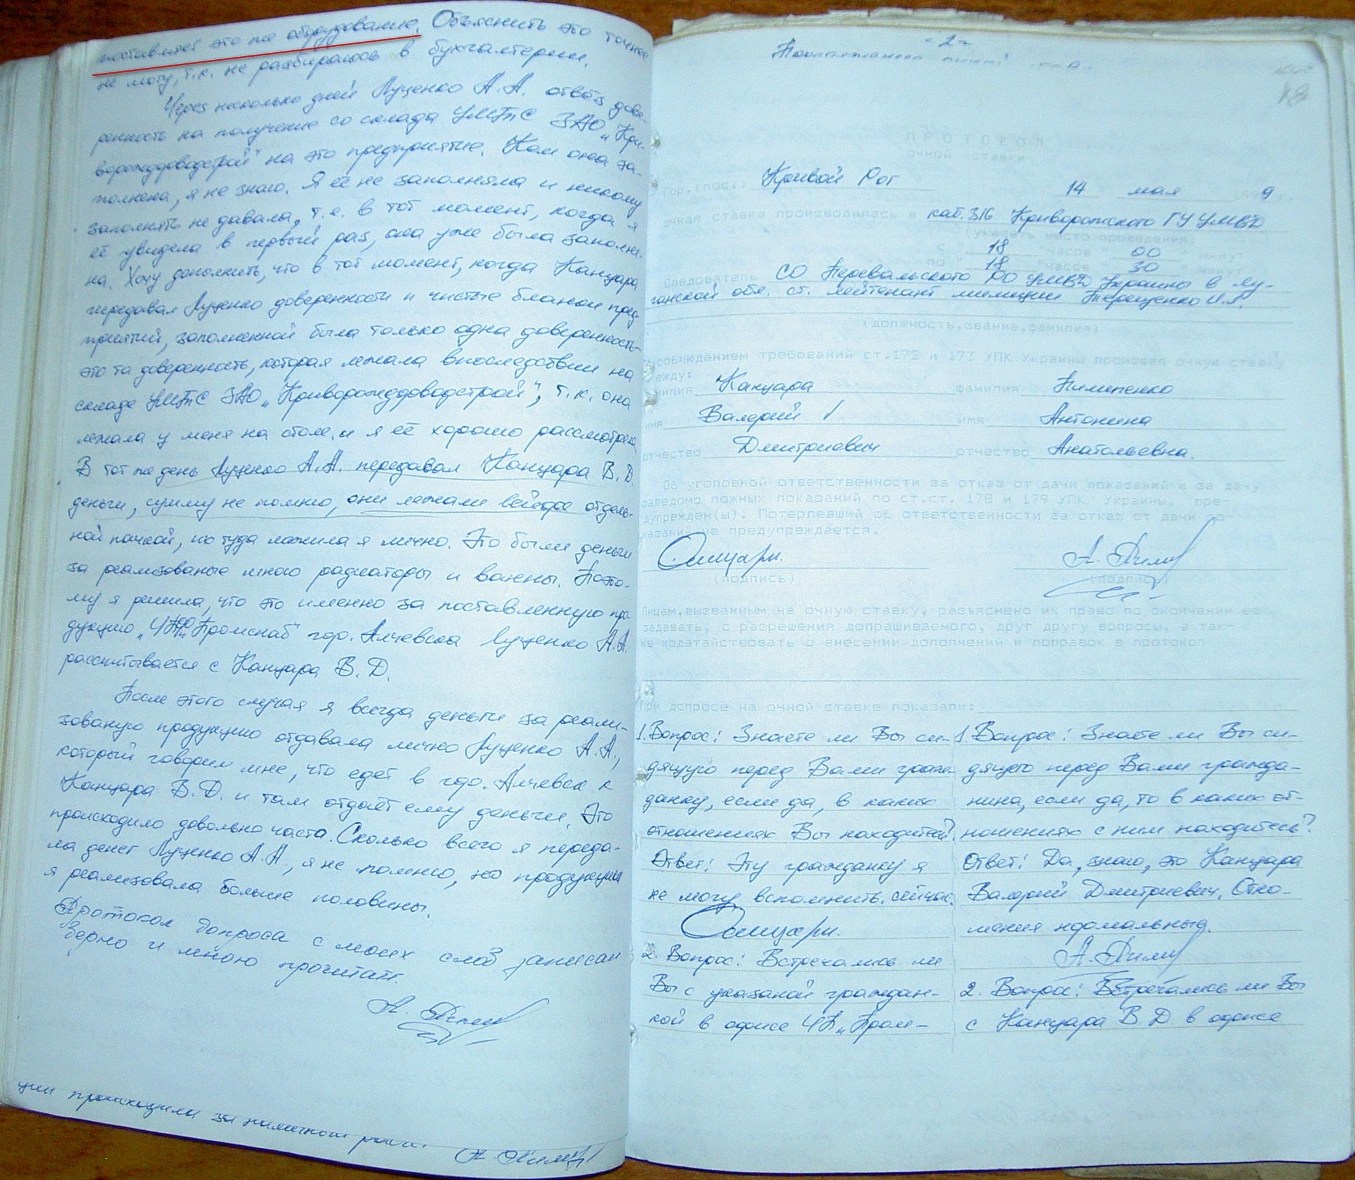 поставляет это же оборудование. Объяснить это точнее
не могу, т.к. не разбираюсь в бухгалтерии.
Через несколько дней Луценко А.А. отвёз дове-
ренность на получение со склада УМТС ЗАО „Кри-
ворожаглоавдстрой" на это предприятие. Кем она за-
полнена, я не знаю. Я её не заполняла и никому
заполнять не давала, т.е. в тот момент, когда я
её увидела в первый раз, она уже была заполне-
на. Хочу дополнить, что в тот момент, когда Канцара
передавал Луценко доверенности и чистые бланки пред-
приятий, заполненной была только одна доверенность-
это та доверенность, которая лежала впоследствии на
складе УМТС ЗАО
т.к. она
лежала у меня на столе и я её хорошо рассмотрела
В тот же день Луценко А.А. передавал Канцара В.Д.
деньги, сумму не помню, они лежали в сейфе отдель-
ной пачкой, но туда ложила я лично. Это были деньги
за реализованые мною радиаторы и ванны. Поэто-
му я решила, что это именно за поставленную про-
дукцию „Промснаб" гор. Алчевска Луценко А.А.
рассчитывается с Канцара В.Д.
После этого случая я всегда деньги за реали-
зованую продукцию отдавала лично Луценко А.А.,
который говорил мне, что едет в гор. Алчевск к
Канцара В.Д. и там отдаёт ему деньги. Это
происходило довольно часто. Сколько всего я переда-
ла денег Луценко А.А., я не помню, но продукции
я реализовала больше половины.
Протокол допроса с моих слов записан
верно и мною прочитан.
происходили за наличный расчет.
- 2 -
ПРОТОКОЛ
очной ставки
Гор.(пос.) Кривой Рог 14 мая 9
очная ставка производилась в каб. 316 Криворожского ГУ УМВД
(указать место проведения)
с 18 часов 00 минут
по 18 часов 30 минут
Следователь СО Перевальского РО УМВД Украины в Лу-
ганской обл. ст. лейтенант милиции Терещенко И.Л.
(должность,звание,фамилия)
с соблюдением требований ст.172 и 173 УПК Украины произвел очную ставку
между:
фамилия Канцара фамилия Пилипенко
имя Валерий имя Антонина
отчество Дмитриевич отчество Анатольевна.
Об уголовной ответственности за отказ от дачи показаний и за дачу
заведомо ложных показаний по ст.ст. 178 и 179 УПК Украины, пре-
дупрежден(ы). Потерпевший об ответственности за отказ от дачи по-
казаний не предупреждается.
(подпись) (подпись)
Лицам,вызванным на очную ставку, разъяснено их право по окончании ее
задавать, с разрешения допрашиваемого, друг другу вопросы, а так-
же ходатайствовать о внесении дополнений и поправок в протокол
При допросе на очной ставке показали:
1. Вопрос: Знаете ли Вы си-
дящую перед Вами граж-
данку, если да, в каких
отношениях Вы находитесь?
Ответ: Эту гражданку я
не могу вспомнить сейчас.
2. Вопрос: Встречались ли
Вы с указаной граждан-
кой в офисе ЧП „Пром-
1. Вопрос: Знаете ли Вы си-
дящего перед Вами гражда-
нина, если да, то в каких от-
ношениях с ним находитесь?
Ответ: Да, знаю, это Канцара
Валерий Дмитриевич. Отно-
шения нормальные.
2. Вопрос: Встречались ли Вы
с Канцара В.Д. в офисе